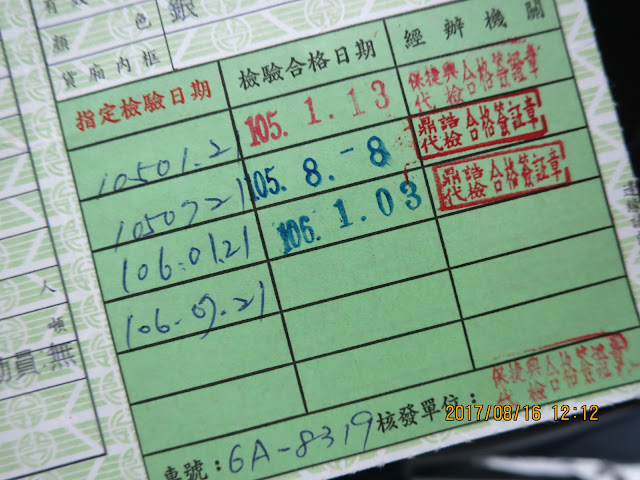 銀
顏 色
貨廂內框
指定檢驗日期 檢驗合格日期 經辦機關
10501.21 105.1.13 保捷興合格簽證章
代檢
1050721 105.8.-8 鼎誥合格簽証章
代檢
106.01.21 106.1.03 鼎誥合格簽証章
代檢
106.07.21
人
員:無
車號:6A-8319 核發單位: 保捷興合格簽證章
代檢
2017/08/16 12:12